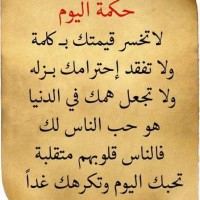 حكمة اليوم
لاتخسر قيمتك بـ كلمة
ولا تفقد إحترامك بـزله
ولا تجعل همك في الدنيا
هو حب الناس لك
فالناس قلوبهم متقلبة
تحبك اليوم وتكرهك غداً